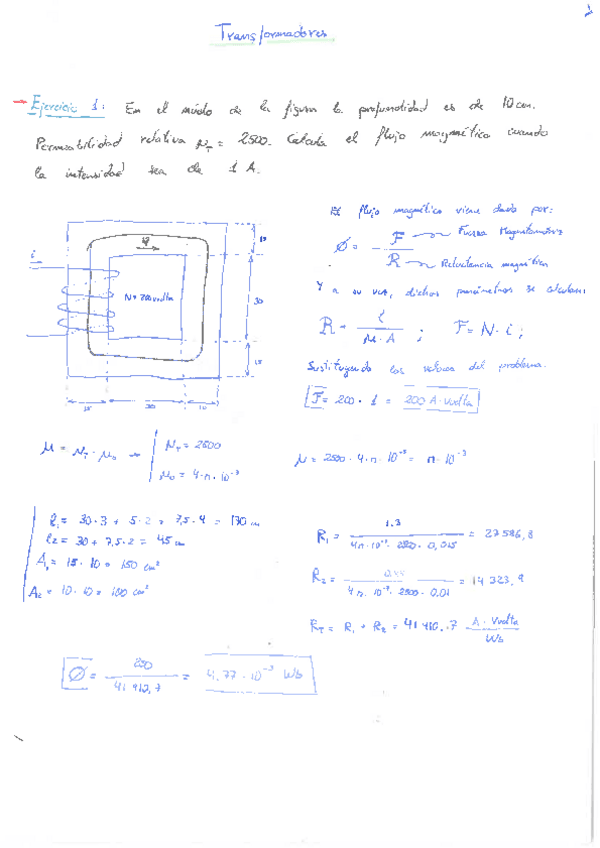 Transformadores
1
→ Ejercicio 1: En el núcleo de la figura la profundidad es de 10 cm.
Permeabilidad relativa μr = 2500. Calcula el flujo magnético cuando
la intensidad sea de 1 A.
i
φ
N = 200 vuelta
15
30
15
15
30
10
El flujo magnético viene dado por:
Ø = F / R
Fuerza Magnetomotriz
Reluctancia magnética
Y a su vez, dichos parámetros se calculan:
R = l / μ·A ; F = N·i ;
Sustituyendo los valores del problema.
F = 200 · 1 = 200 A·vuelta
μ = μr · μ0 → μr = 2500
μ0 = 4·π·10⁻⁷
μ = 2500 · 4·π·10⁻⁷ = π·10⁻³
l1 = 30·3 + 5·2 + 7,5·4 = 130 cm
l2 = 30 + 7,5·2 = 45 cm
A1 = 15·10 = 150 cm²
A2 = 10·10 = 100 cm²
R1 = 1.3 / 4π·10⁻⁷·2500·0,015 = 27586,8
R2 = / 4π·10⁻⁷·2500·0.01 = 14323,9
RT = R1 + R2 = 41910,7 A·Vuelta / Wb
Ø = 200 / 41910,7 = 4,77·10⁻³ Wb